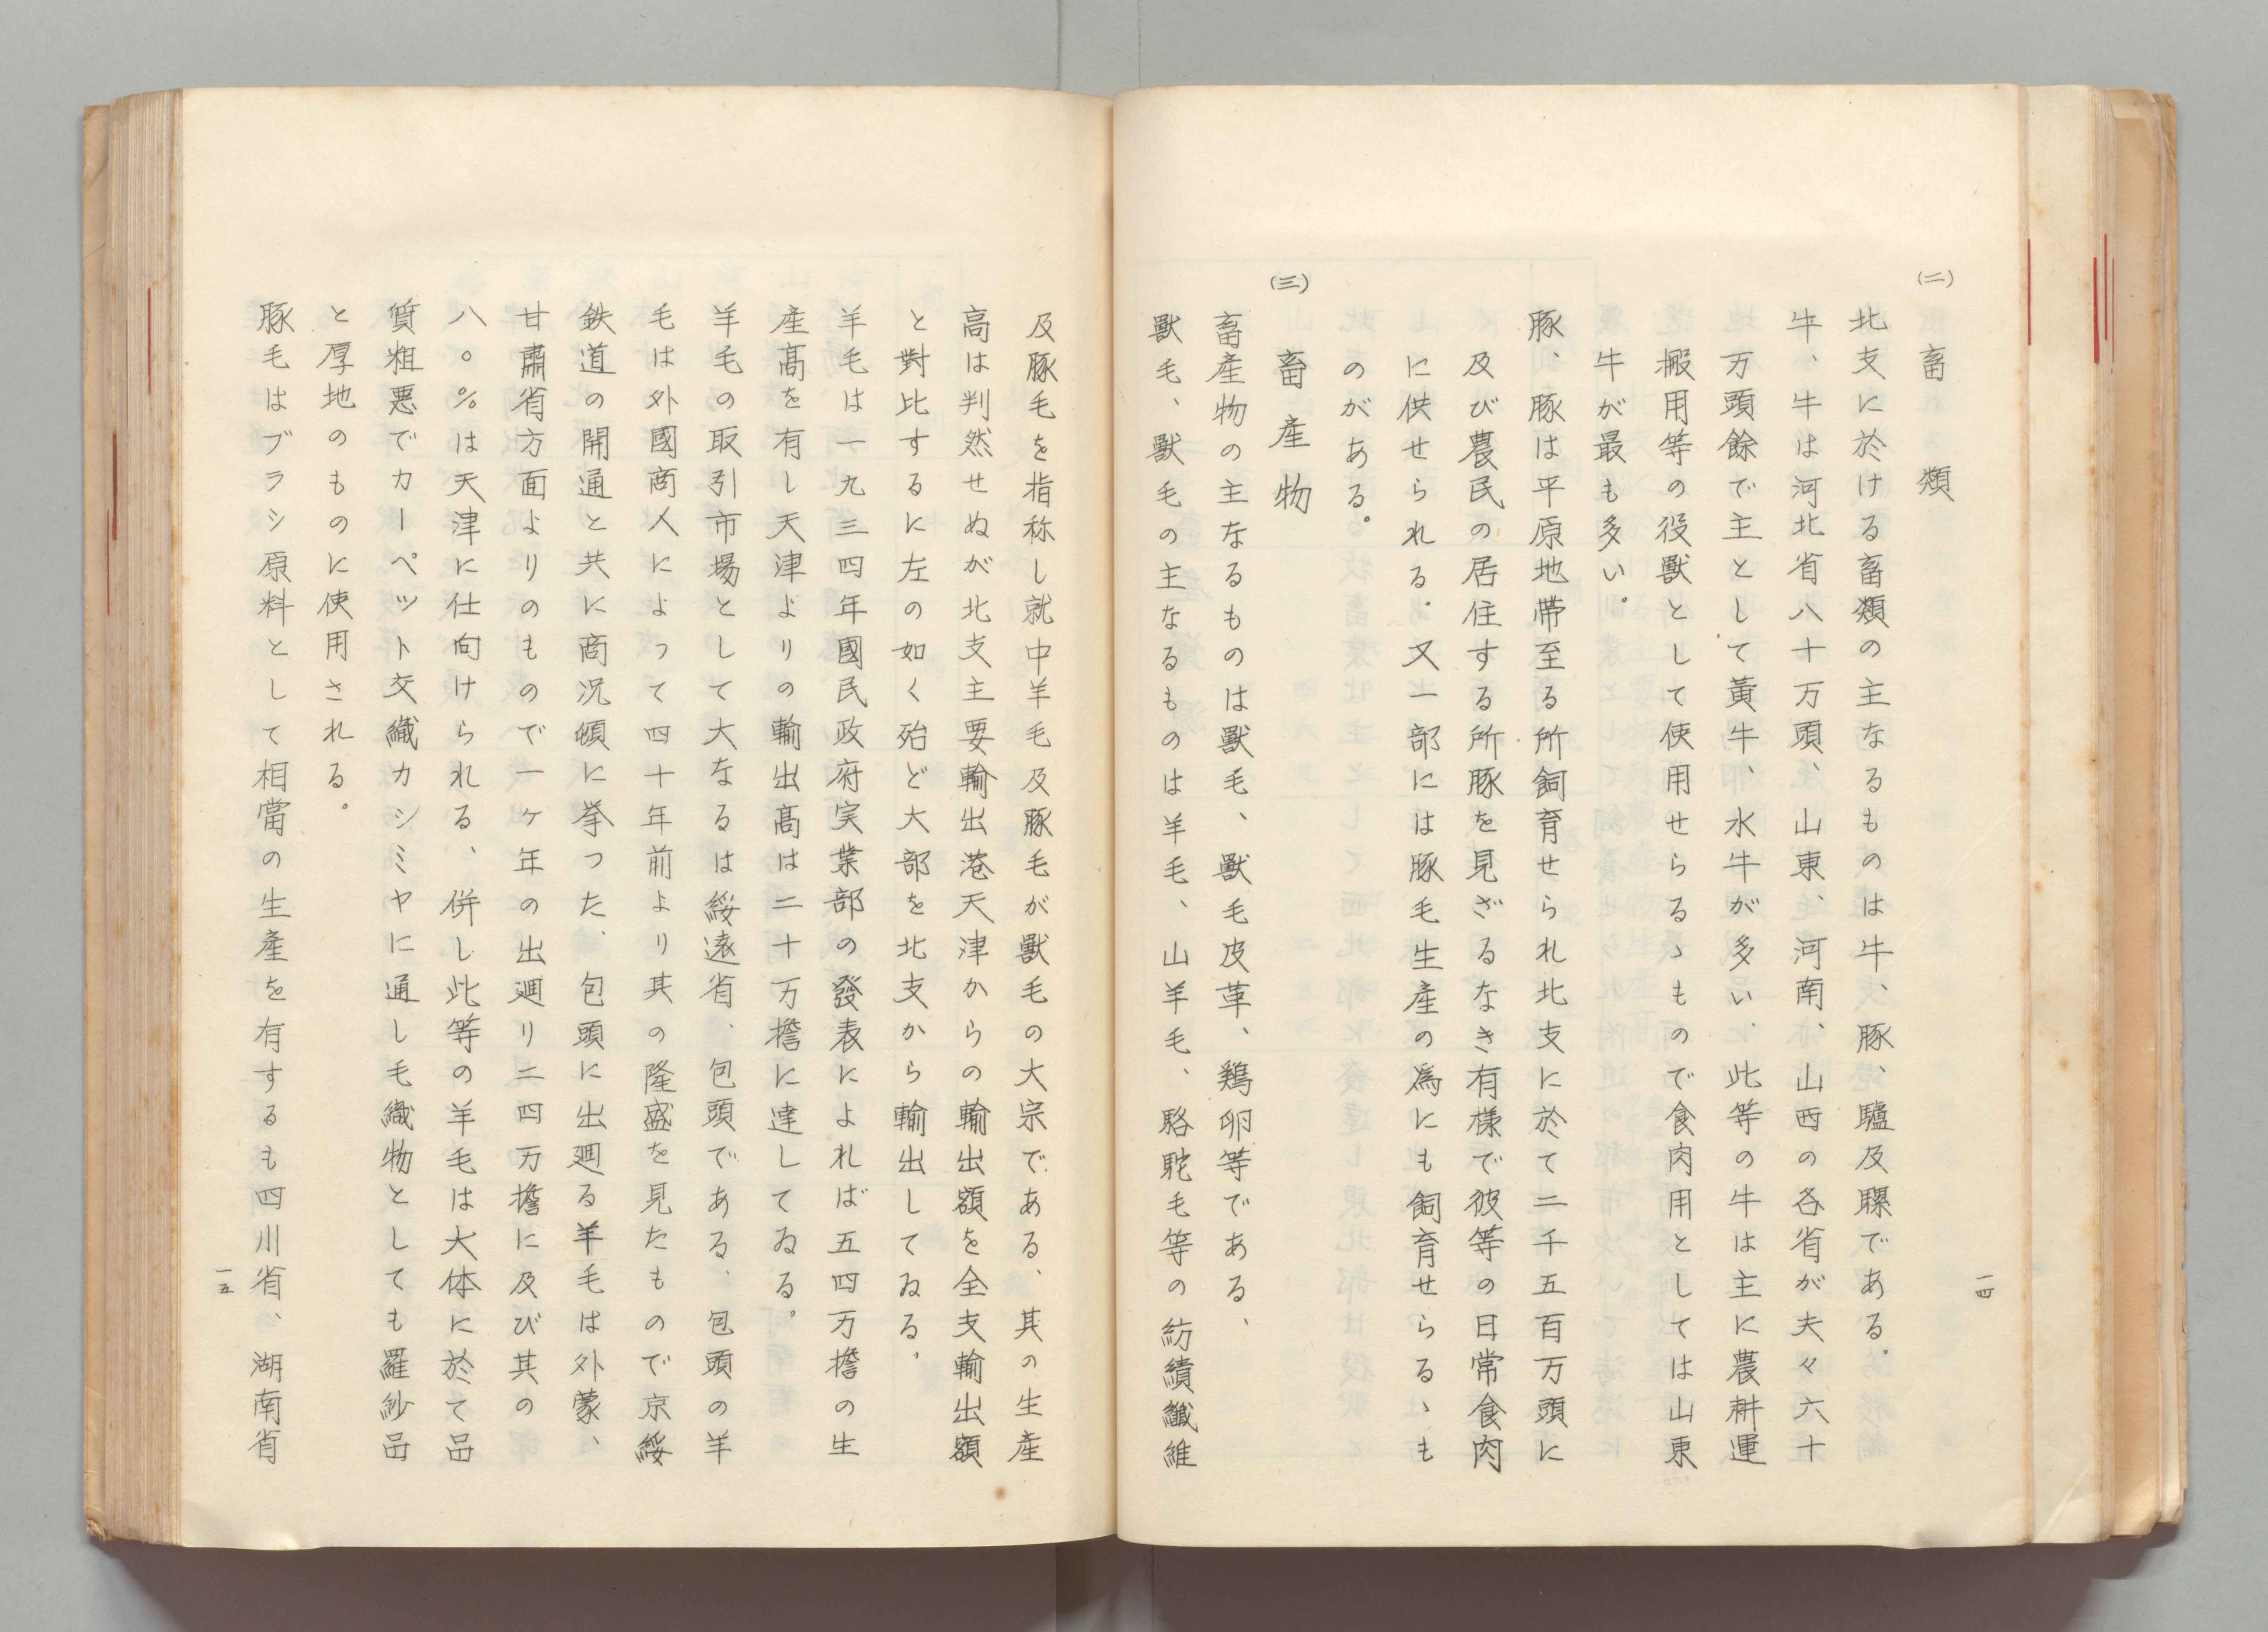 (二) 畜類
北支に於ける畜類の主なるものは牛、豚、驢及騾である。
牛、牛は河北省八十万頭、山東、河南、山西の各省が夫々六十
万頭餘で主として黃牛、水牛が多い、此等の牛は主に農耕運
搬用等の役獸として使用せらるゝもので食肉用としては山東
牛が最も多い。
豚、豚は平原地帶至る所飼育せられ北支に於て二千五百万頭に
及び農民の居住する所豚を見ざるなき有様で彼等の日常食肉
に供せられる。又一部には豚毛生産の爲にも飼育せらるゝも
のがある。
(三) 畜産物
畜産物の主なるものは獸毛、獸毛皮革、鶏卵等である、
獸毛、獸毛の主なるものは羊毛、山羊毛、駱駝毛等の紡績纖維
一四
及豚毛を指称し就中羊毛及豚毛が獸毛の大宗である、其の生産
高は判然せぬが北支主要輸出港天津からの輸出額を全支輸出額
と對比するに左の如く殆ど大部を北支から輸出してゐる、
羊毛は一九三四年國民政府実業部の發表によれば五四万擔の生
産高を有し天津よりの輸出高は二十万擔に達してゐる。
羊毛の取引市場として大なるは綏遠省、包頭である、包頭の羊
毛は外國商人によって四十年前より其の隆盛を見たもので京綏
鉄道の開通と共に商況頓に挙つた、包頭に出廻る羊毛は外蒙、
甘肅省方面よりのもので一ヶ年の出廻り二四万擔に及び其の
八〇%は天津に仕向けられる、併し此等の羊毛は大体に於て品
質粗悪でカーペット交織カシミヤに通し毛織物としても羅紗品
と厚地のものに使用される。
豚毛はブラシ原料として相當の生産を有するも四川省、湖南省
一五